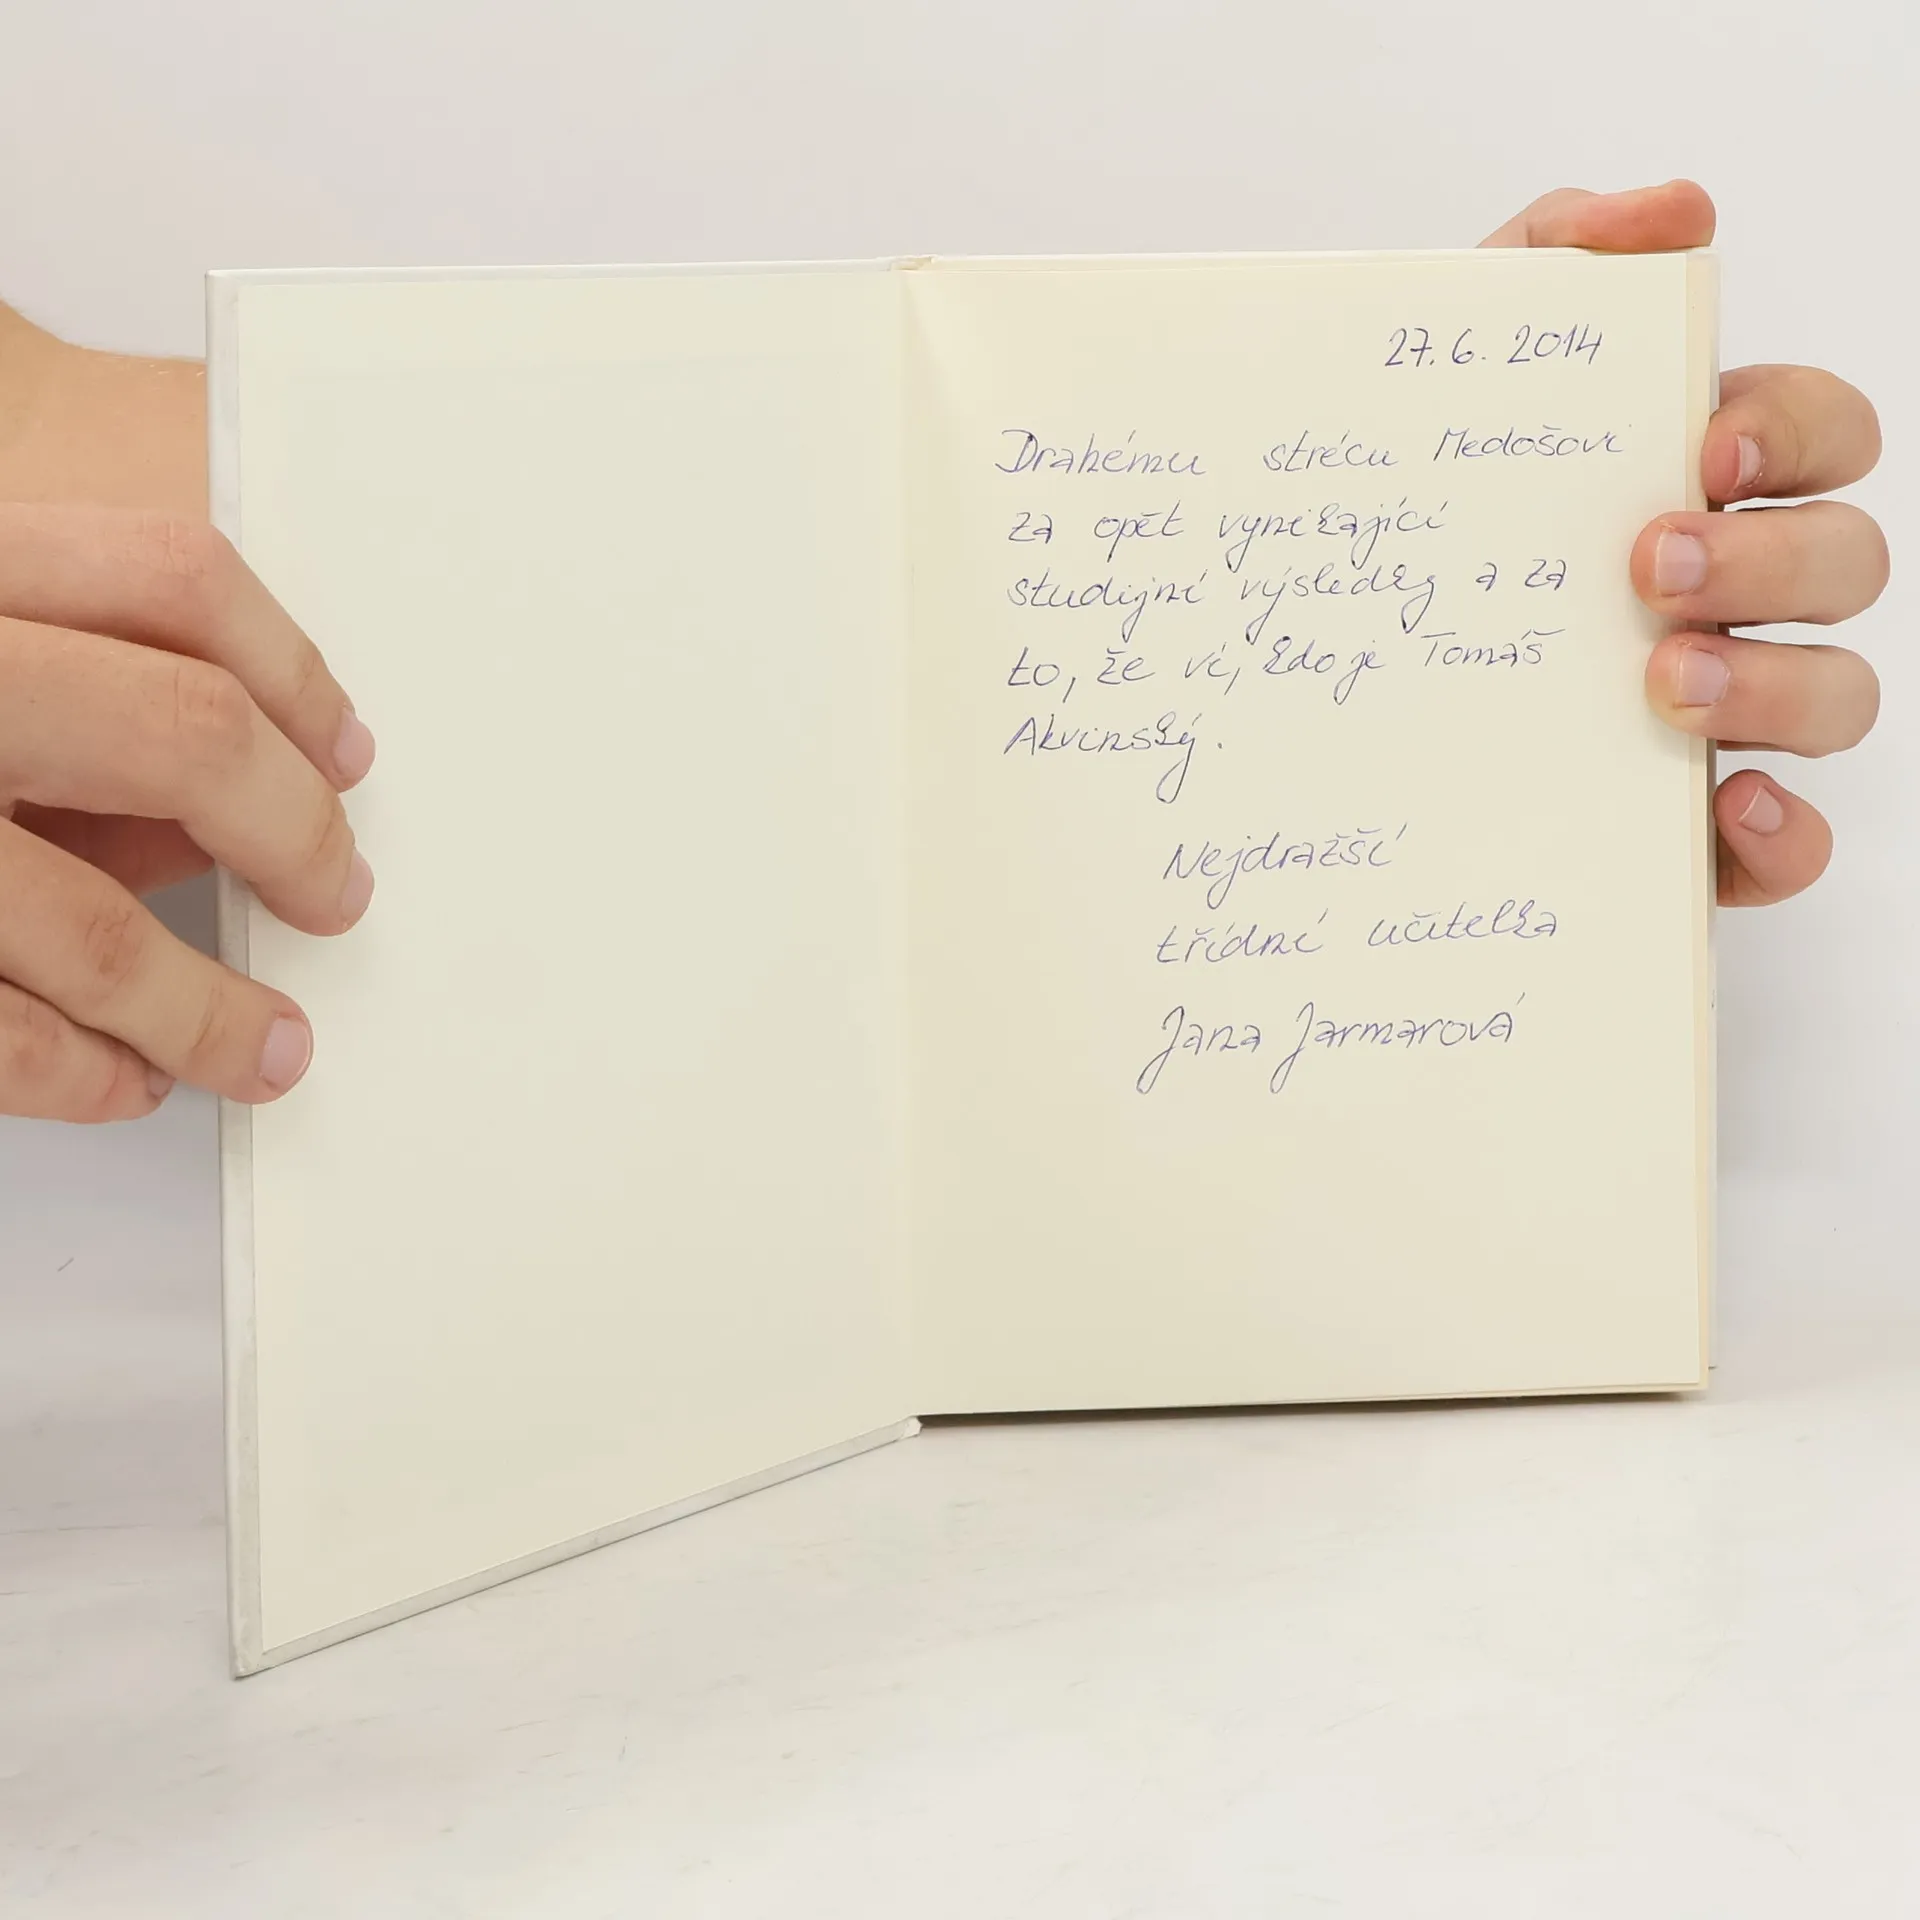 27. 6. 2014
Drahému strécu Medošovi
za opět vynikající
studijní výsledky a za
to, že ví, kdo je Tomáš
Akvinský.
Nejdražší
třídní učitelka
Jana Jarmarová